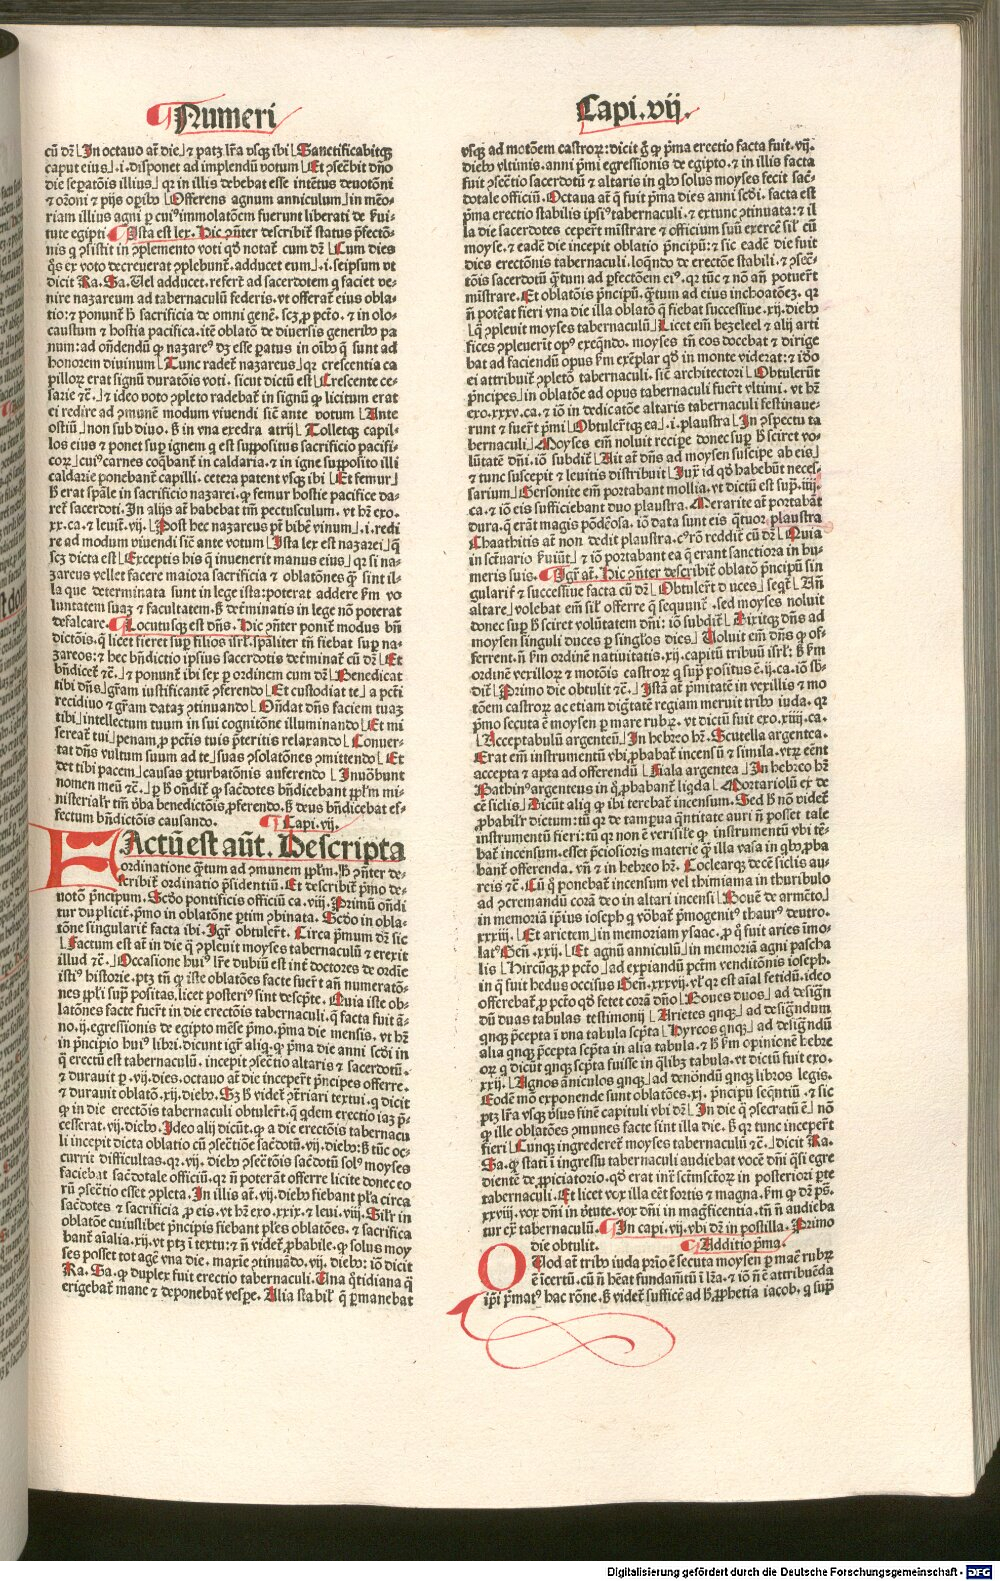 Numeri
Capi.vij.
cū dʒ In octauo at̄ die ⁊ patꝫ lr̄a vsqꝫ ibi Sanctificabitqꝫ
caput eius .i. disponet ad implendū votum Et ɔsec̄bit dn̄o
die sepatōis illius qr in illis debebat esse intētus deuotōni
Offerens agnum anniculum in mēo-
riam illius agni ꝑ cuiꝰ immolatōem fuerunt liberati de ẜui-
tute egipti. Ista est lex. Hic ɔn̄ter describit̄ status ꝑfectō-
Cum dies
qs ex voto decreuerat ɔplebunt̄. adducet eum .i. seipsum vt
dicit Ra. Sa. Uel adducet. refert̄ ad sacerdotem q̄ faciet ve-
nire nazareum ad tabernaculū federis. vt offerat eius obla-
tio: ⁊ ponunt̄ hͥ sacrificia de omni genē. scꝫ ꝓ pctō. ⁊ in olo-
caustum ⁊ hostia pacifica. itē oblatō de diuersis generibꝰ pa
num: ad on̄dendū ꝙ nazareꝰ dꝫ esse ꝑatus in oībꝰ q̄ sunt ad
honorem diuinum Tunc radet̄ nazareus qr crescentia ca
pillorꝫ erat signū duratōis voti. sicut dictū est Crescente ce-
sarie ⁊c̄. ⁊ ideo voto ɔpleto radebat̄ in signū ꝙ licitum erat
ei redire ad ɔmunē modum viuendi sic̄ ante votum Ante
ostiū non sub diuo. ẜ in vna exedra atrij Tolletqꝫ capil-
los eius ⁊ ponet suꝑ ignem q̄ est suppositus sacrificio pacifi-
corꝫ cuiꝰ carnes coq̄bant̄ in caldaria. ⁊ in igne supposito illi
caldarie ponebant̄ capilli. cetera patent vsqꝫ ibi Et femur
hͥ erat spāle in sacrificio nazarei. ꝙ femur hostie pacifice da-
ret̄ sacerdoti. In alijs at̄ habebat tm̄ pectusculum. vt hꝫ exo.
xx.ca. ⁊ leuit̄. vij. Post hec nazareus pt̄ bibē vinum .i. redi
re ad modum viuendi sic̄ ante votum Ista lex est nazarei q̄
scꝫ dicta est Exceptis his q̄ inuenerit manus eius qr si na-
zareus vellet facere maiora sacrificia ⁊ oblatōnes q̄ sint il-
la que determinata sunt in lege ista: poterat addere ẜm vo
luntatem suaꝫ ⁊ facultatem. ẜ det̄minatis in lege nō poterat
defalcare. Locutusqꝫ est dn̄s. Hic ɔn̄ter ponit̄ modus bn̄
dictōis. q̄ licet fieret suꝑ filios isrl̄. spāliter tn̄ fiebat suꝑ na-
zareos: ⁊ hec bn̄dictio ipsius sacerdotis det̄minat̄ cū dꝫ Et
bn̄dicet̄ ⁊c̄. ⁊ ponunt̄ ibi sex ꝑ ordinem cum dꝫ Benedicat
tibi dn̄s gr̄am iustificantē ɔferendo Et custodiat te a pctī
recidiuo ⁊ gr̄am dataꝫ ɔtinuando On̄dat dn̄s faciem tuaꝫ
tibi intellectum tuum in sui cognitōne illuminando Et mi
sereat̄ tui penam ꝓ pctīs tuis p̄teritis relaxando Conuer-
tat dn̄s vultum suum ad te suas ɔsolatōnes ɔmittendo Et
det tibi pacem causas ꝑturbatōnis auferendo Inuōbunt
nomen meū ⁊c̄. ꝑ hͥ on̄dit̄ ꝙ sacdotes bn̄dicebant pplm̄ mi-
nisterialr̄ tm̄ v̄ba benedictōis ꝓferendo. ẜ deus bn̄dicebat ef-
fectum bn̄dictōis causando. Capi. vij.
FActū est aūt. Descripta
ordinatione qtum ad ɔmunem pplm̄. hͥ ɔn̄ter de-
scribit̄ ordinatio p̄sidentiū. Et describit̄ p̄mo de-
uotō p̄ncipum. Scd̄o pontificis officiū ca. viij. Primū on̄di
tur duplicit̄. p̄mo in oblatōne ꝑtim ɔbinata. Scd̄o in obla-
tōne singularit̄ facta ibi. Igr̄ obtulert̄. Circa p̄mum dꝫ sic
Factum est at̄ in die q̄ ɔpleuit moyses tabernaculū ⁊ erexit
illud ⁊c̄. Occasione huiꝰ lr̄e dubiū est int̄ doctores de ordīe
istiꝰ historie. ptꝫ tn̄ ꝙ iste oblatōes facte fuert̄ an̄ numeratō-
nes ppl̄i supͣ positas. licet posteriꝰ sint descpte. Quia iste ob-
latōnes facte fuert̄ in die erectōis tabernaculi. q̄ facta fuit ā-
no .ij. egressionis de egipto mēse p̄mo. p̄ma die mensis. vt hꝫ
in p̄ncipio huiꝰ libri. dicunt igr̄ aliq̄. ꝙ p̄ma die anni scd̄i in
q̄ erectū est tabernaculū. incepit ɔsectio altaris ⁊ sacerdotū.
⁊ durauit ꝑ .vij. dies. octauo at̄ die incepert̄ p̄ncipes offerre.
⁊ durauit oblatō .xij. diebꝰ. Sꝫ hͥ videt̄ ɔtrariari textui. q̄ dicit
ꝙ in die erectōis tabernaculi obtulert̄. q̄ qdem erectio iaꝫ p̄-
cesserat. vij. diebꝰ. Ideo alij dicūt. ꝙ a die erectōis tabernacu
li incepit dicta oblatio cū ɔsectiōe sacdotū. vij. diebꝰ: ẜ tūc oc-
currit difficultas. qr. vij. diebꝰ ɔsectōis sacdotū solꝰ moyses
faciebat sacdotale officiū. qr n̄ poterāt offerre licite donec eo
rū ɔsectio esset ɔpleta. In illis at̄. vij. diebꝰ fiebant pl̄a circa
sacdotes ⁊ sacrificia ꝓ eis. vt hꝫ exo. xxix. ⁊ leui. viij. Silr̄ in
oblatōe cuiuslibet p̄ncipis fiebant pl̄es oblatōes. ⁊ sacrifica
bant̄ aīalia. xij. vt ptꝫ ī textu: ⁊ n̄ videt̄ ꝓbabile. ꝙ solus moy
ses posset tot agē vna die. maxīe ɔtinuādo .vij. diebꝰ: iō dicit
Ra. Sa. ꝙ duplex fuit erectio tabernaculi. Una qtidiana q̄
erigebat̄ mane ⁊ deponebat̄ vespe. Alia stabil̄ q̄ ꝑmanebat
vsqꝫ ad motōem castrorꝫ: dicit g̊ ꝙ p̄ma erectio facta fuit .vij.
diebꝰ vltimis. anni p̄mi egressionis de egipto. ⁊ in illis facta
fuit ɔsectio sacerdotū ⁊ altaris in qbꝰ solus moyses fecit sac-
dotale officiū. Octaua at̄ q̄ fuit p̄ma dies anni scd̄i. facta est
p̄ma erectio stabilis ipsiꝰ tabernaculi. ⁊ extunc ɔtinuata: ⁊ il
la die sacerdotes cepert̄ mīstrare ⁊ officium suū exercē sil̄ cū
moyse. ⁊ eadē die incepit oblatio p̄ncipū: ⁊ sic eadē die fuit
dies erectōnis tabernaculi. loqndo de erectōe stabili. ⁊ ɔsec-
tōis sacerdotū qtum ad ꝑfectōem eiꝰ. qr tūc ⁊ nō an̄ potuert̄
mīstrare. Et oblatōis p̄ncipū. qtum ad eius inchoatōeꝫ. qr
n̄ potēat fieri vna die illa oblatō q̄ fiebat successiue .xij. diebꝰ
q̄ ɔpleuit moyses tabernaculū Licet em̄ bezeleel ⁊ alij arti
fices ɔpleuerit̄ opꝰ exeqndo. moyses tn̄ eos docebat ⁊ dirige
bat ad faciendū opus ẜm exēplar qd̄ in monte viderat: ⁊ idō
ei attribuit̄ ɔpletō tabernaculi. sic̄ architectori Obtulerūt
p̄ncipes in oblatōe ad opus tabernaculi fuert̄ vltimi. vt hꝫ
exo. xxxv. ca. ⁊ iō in dedicatōe altaris tabernaculi festinaue-
runt ⁊ fuert̄ p̄mi Obtulert̄qꝫ ea .i. plaustra In ɔspectu ta
bernaculi Moyses em̄ noluit recipe donec suꝑ hͥ sciret vo-
lūtatē dn̄i. iō subdit̄ Ait at̄ dn̄s ad moysen suscipe ab eis
⁊ tunc suscepit ⁊ leuitis distribuit Iuxͭ id qd̄ habebūt neces-
sarium Gersonite em̄ portabant mollia. vt dictū est supͣ. iiij.
ca. ⁊ iō eis sufficiebant duo plaustra. Merarite at̄ portabāt
dura. q̄ erāt magis pōderōsa. iō data sunt eis qtuor plaustra
Chaathitis at̄ non dedit plaustra. cꝰ rō reddit̄ cū dꝫ Quia
in sctūario ẜuiūt ⁊ iō portabant ea q̄ erant sanctiora in hu-
meris suis. Igr̄ at̄. Hic ɔn̄ter describit̄ oblatō p̄ncipū sin
gularit̄ ⁊ successiue facta cū dꝫ Obtulert̄ duces seqt̄ An̄
altare volebat em̄ sil̄ offerre q̄ sequunt̄. sed moyses noluit
donec suꝑ hͥ sciret volūtatem dn̄i: iō subdit̄ Dixitqꝫ dn̄s ad
moysen singuli duces ꝑ singlos dies Uoluit em̄ dn̄s ꝙ of-
ferrent. n̄ ẜm ordinē natiuitatis. xij. capitū tribuū isrl̄: ẜ ẜm
ordinē vexillorꝫ ⁊ motōis castrorꝫ q̄ supͣ positus ē. ij. ca. iō sb-
dit̄ Primo die obtulit ⁊c̄. Istā at̄ p̄mitatē in vexillis ⁊ mo
tōem castrorꝫ ac etiam digitatē regiam meruit tribꝰ iuda. qr
p̄mo secuta ē moysen ꝑ mare rubꝫ. vt dictū fuit exo. xiiij. ca.
Acceptabulū argenteū In hebreo hꝫ. Scutella argentea.
Erat em̄ instrumentū vbi ꝓbabat̄ incensū ⁊ simila. vtrꝫ eent
accepta ⁊ apta ad offerendū Fiala argentea In hebreo hꝫ
Pathinꝰ argenteus in q̄ ꝓbabant̄ liqda Mortariolū ex de
cē siclis Dicūt aliq̄ ꝙ ibi terebat̄ incensum. Sed hͥ nō videt̄
ꝓbabilr̄ dictum: tū qr de tam pua qntitate auri n̄ posset tale
instrumentū fieri: tū qr non ē verisil̄e ꝙ instrumentū vbi tē-
bat̄ incensum. esset p̄ciosioris materie ꝙ illa vasa in qbꝰ ꝓba
bant̄ offerenda. vn̄ ⁊ in hebreo hꝫ. Coclearqꝫ decē siclis au-
reis ⁊c̄. Cū q̄ ponebat̄ incensum vel thimiama in thuribulo
ad ɔcremandū corā deo in altari incensi Bouē de armēto
in memoriā ip̄ius ioseph q̄ vōbat̄ p̄mogenitꝰ thaurꝰ deutro.
xxxiij. Et arietem in memoriam ysaac. ꝓ q̄ fuit aries imo-
latꝰ Gen̄. xxij. Et agnū anniculū in memoriā agni pascha
lis Hircūqꝫ ꝓ pctō ad expiandū pctm̄ venditōnis ioseph.
in q̄ fuit hedus occisus Gen̄. xxxvij. vl̄ qr est aīal fetidū. ideo
offerebat̄ ꝓ pctō qd̄ fetet corā dn̄o Boues duos ad design̄
dū duas tabulas testimonij Arietes qnqꝫ ad designdum
qnqꝫ p̄cepta ī vna tabula scpta Hyrcos qnqꝫ ad designdū
alia qnqꝫ p̄cepta scpta in alia tabula. ⁊ hͥ ẜm opinionē hebre
orꝫ q̄ dicūt qnqꝫ scpta fuisse in qlibꝫ tabula. vt dictū fuit exo.
xxij. Agnos āniculos qnqꝫ ad denōndū qnqꝫ libros legis.
Eodē mō exponende sunt oblatōes. xj. p̄ncipū seqntiū. ⁊ sic
ptꝫ lr̄a vsqꝫ ṽsus finē capituli vbi dꝫ In die q̄ ɔsecratū ē nō
ꝙ ille oblatōes ɔmunes facte sint illa die. ẜ qr tunc incepert̄
fieri Cunqꝫ ingrederet̄ moyses tabernaculū ⁊c̄. dicit Ra.
Sa. ꝙ statī ī ingressu tabernaculi audiebat vocē dn̄i qsi egre
dientē de ꝓpiciatorio. qd̄ erat int̄ sctm̄sctorꝫ in posteriori ꝑte
tabernaculi. Et licet vox illa cēt fortis ⁊ magna. ẜm ꝙ dꝫ ps̄.
xxviij. vox dn̄i in ṽtute. vox dn̄i in magficentia. tn̄ n̄ audieba
tur extͣ tabernaculū. In capi. vij. vbi dꝫ in postilla. Primo
die obtulit. Additio p̄ma.
QUod at̄ tribꝰ iuda prio ē secuta moysen ꝑ mare rubꝫ
ē icertū. cū n̄ hēat fundamtū ī lr̄a. ⁊ iō n̄ ē attribuēda
ip̄i p̄matꝰ hac rōne. ẜ videt̄ sufficē ad hͥ ꝓphetia iacob. q̄ supͣ
Digitalisierung gefördert durch die Deutsche Forschungsgemeinschaft - DFG